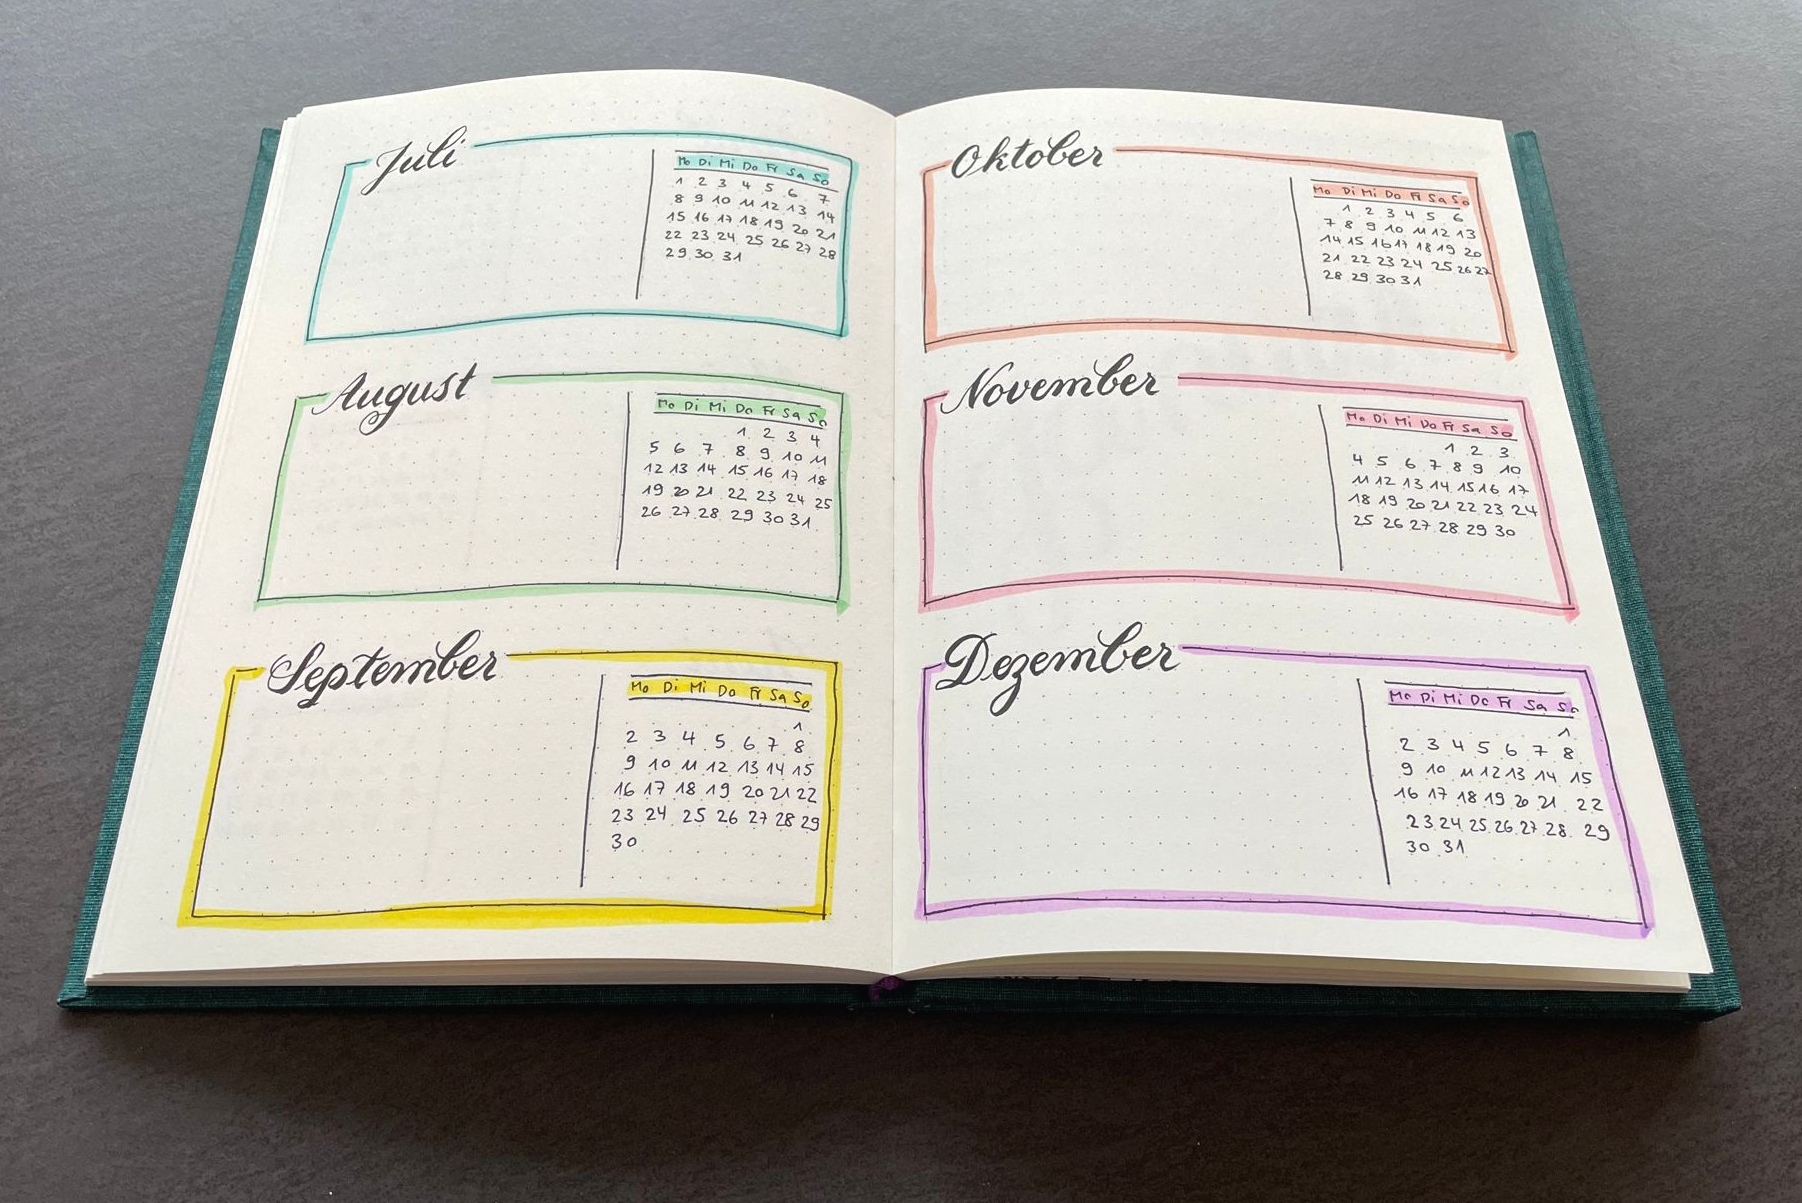 Juli
Mo Di Mi Do Fr Sa So
1 2 3 4 5 6 7
8 9 10 11 12 13 14
15 16 17 18 19 20 21
22 23 24 25 26 27 28
29 30 31
August
Mo Di Mi Do Fr Sa So
1 2 3 4
5 6 7 8 9 10 11
12 13 14 15 16 17 18
19 20 21 22 23 24 25
26 27 28 29 30 31
September
Mo Di Mi Do Fr Sa So
1
2 3 4 5 6 7 8
9 10 11 12 13 14 15
16 17 18 19 20 21 22
23 24 25 26 27 28 29
30
Oktober
Mo Di Mi Do Fr Sa So
1 2 3 4 5 6
7 8 9 10 11 12 13
14 15 16 17 18 19 20
21 22 23 24 25 26 27
28 29 30 31
November
Mo Di Mi Do Fr Sa So
1 2 3
4 5 6 7 8 9 10
11 12 13 14 15 16 17
18 19 20 21 22 23 24
25 26 27 28 29 30
Dezember
Mo Di Mi Do Fr Sa So
1
2 3 4 5 6 7 8
9 10 11 12 13 14 15
16 17 18 19 20 21 22
23 24 25 26 27 28 29
30 31